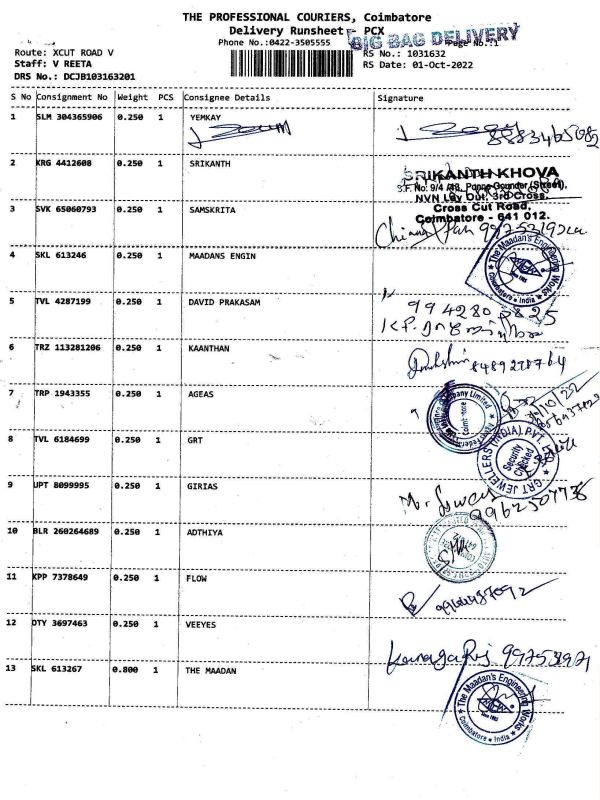 THE PROFESSIONAL COURIERS, Coimbatore
Delivery Runsheet - PCX
BIG BAG DELIVERY
Phone No.:0422-3505555 Page No.:1
Route: XCUT ROAD V RS No.: 1031632
Staff: V REETA RS Date: 01-Oct-2022
DRS No.: DCJB103163201
S No Consignment No Weight PCS Consignee Details Signature
1 SLM 304365906 0.250 1 YEMKAY
2 KRG 4412608 0.250 1 SRIKANTH
SRIKANTH KHOVA
NVN Lay Out, 3rd Cross,
Cross Cut Road,
Coimbatore - 641 012.
3 SVK 65060793 0.250 1 SAMSKRITA
4 SKL 613246 0.250 1 MAADANS ENGIN
The Maadan's Engineering Works
Coimbatore India
5 TVL 4287199 0.250 1 DAVID PRAKASAM
6 TRZ 113281206 0.250 1 KAANTHAN
7 TRP 1943355 0.250 1 AGEAS
8 TVL 6184699 0.250 1 GRT
GRT JEWELLERS (INDIA) PVT.
Security Checked
9 UPT 8099995 0.250 1 GIRIAS
9962507736
10 BLR 260264689 0.250 1 ADTHIYA
11 KPP 7378649 0.250 1 FLOW
12 DTY 3697463 0.250 1 VEEYES
13 SKL 613267 0.800 1 THE MAADAN
The Maadan's Engineering Works
Since 1985
Coimbatore India